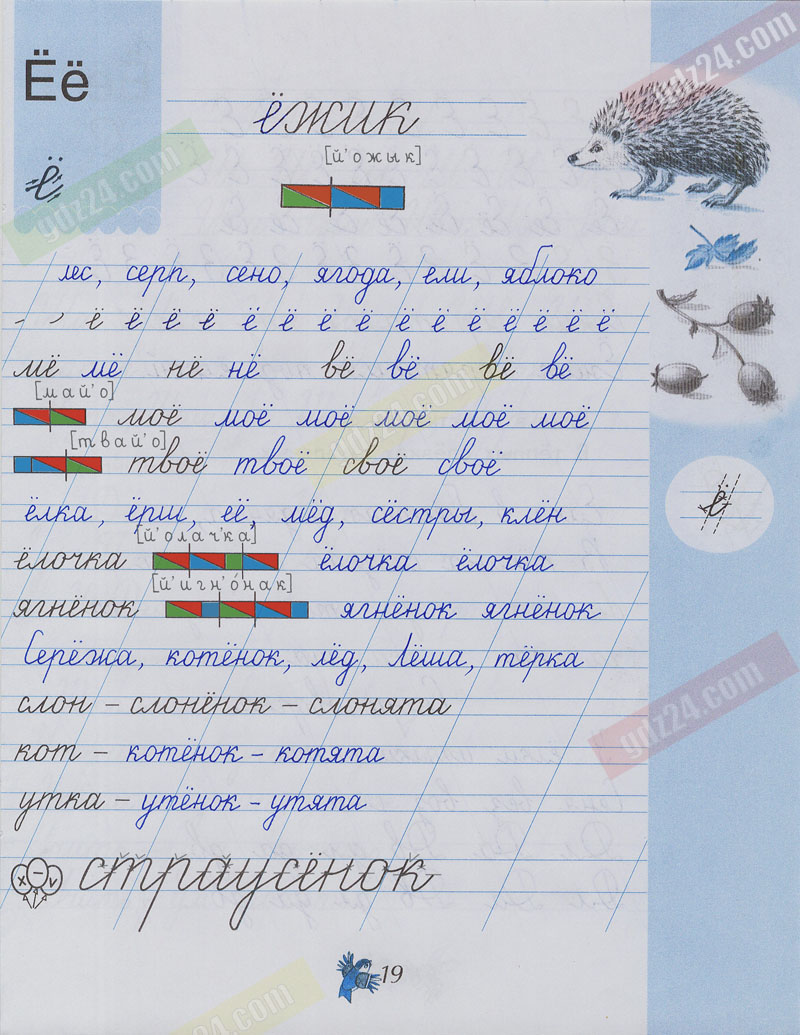 Ёё
ёжик
[й'ожык]
ё
лес, серп, сено, ягода, ели, яблоко
ё ё ё ё ё ё ё ё ё ё ё ё ё ё ё
мё мё нё нё вё вё вё вё
[май'о]
моё моё моё моё моё моё
[твай'о]
твоё твоё своё своё
ёлка, ёрш, её, мёд, сёстры, клён
ё
[й'олач'ка]
ёлочка ёлочка ёлочка
[й'игн'о́нак]
ягнёнок ягнёнок ягнёнок
Серёжа, котёнок, лёд, Лёша, тёрка
слон – слонёнок – слонята
кот – котёнок – котята
утка – утёнок – утята
х – v
страусёнок
19
gdz24.com
gdz24.com
gdz24.com
gdz24.com
gdz24.com